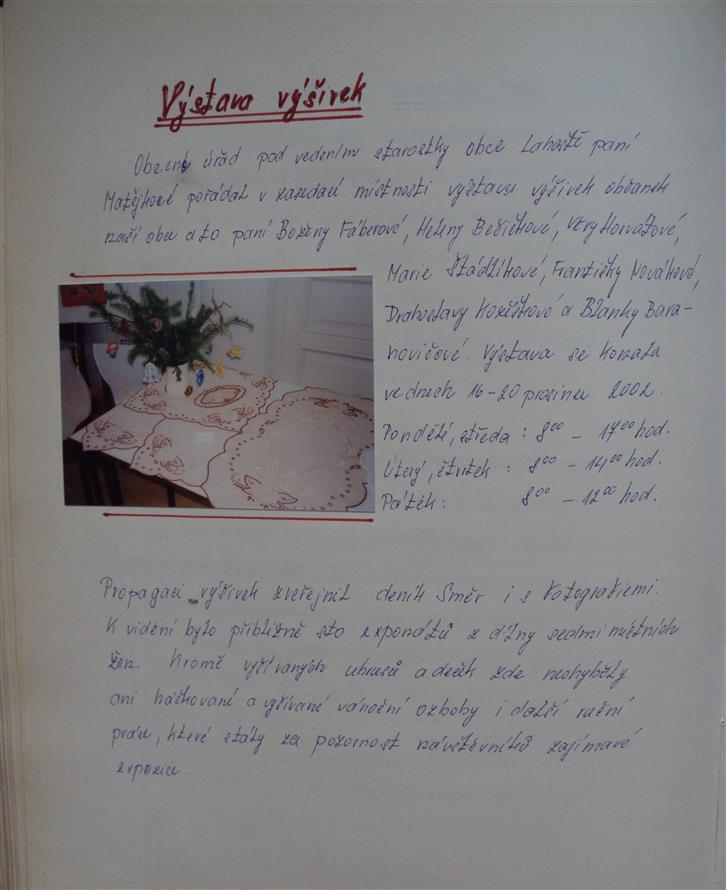 Výstava výšivek
Obecní úřad pod vedením starostky obce Lahošť paní
Matějkové pořádal v zasedací místnosti výstavu výšivek občanek
naší obce a to paní Boženy Fáberové, Heleny Bečičkové, Věry Horvátové,
Marie Štádlíkové, Františky Novákové,
Drahoslavy Kožíškové a Blanky Bara-
novičové. Výstava se konala
ve dnech 16-20 prosince 2002.
Pondělí, středa : 8⁰⁰ - 17⁰⁰ hod.
Úterý, čtvrtek : 8⁰⁰ - 14⁰⁰ hod.
Pátek : 8⁰⁰ - 12⁰⁰ hod.
Propagaci výšivek zveřejnil deník Směr i s fotografiemi.
K vidění bylo přibližně sto exponátů z dílny sedmi místních
žen. Kromě vyšívaných ubrusů a deček zde nechyběly
ani háčkované a vyšívané vánoční ozdoby i další ruční
práce, které stály za pozornost návštěvníků zajímavé
expozice.